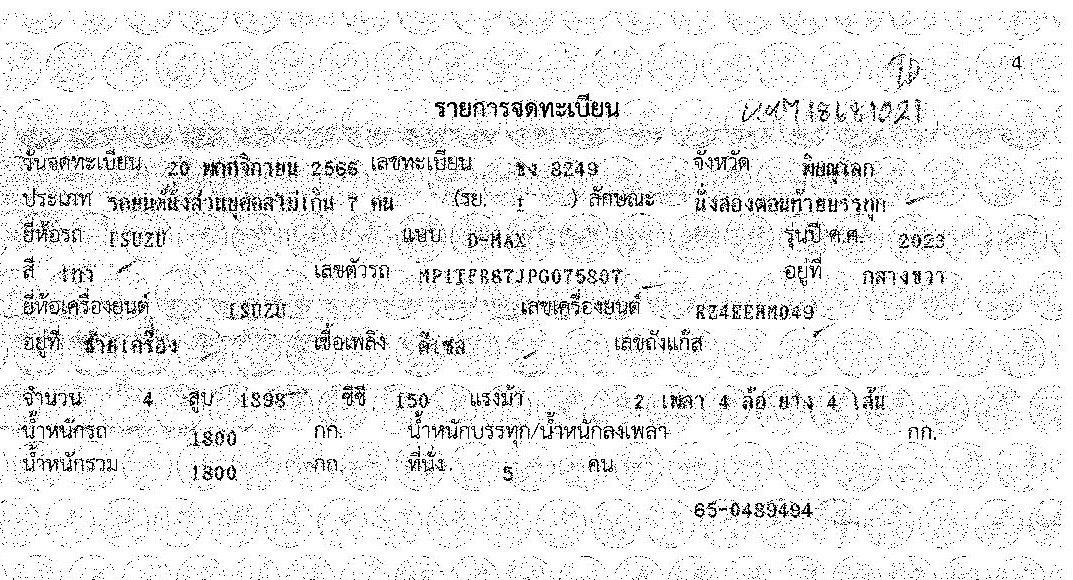 4
รายการจดทะเบียน
วันจดทะเบียน 20 พฤศจิกายน 2566 เลขทะเบียน ขง 8249 จังหวัด พิษณุโลก
ประเภท รถยนต์นั่งส่วนบุคคลไม่เกิน 7 คน (รย. 1 ) ลักษณะ นั่งสองตอนท้ายบรรทุก
ยี่ห้อรถ ISUZU แบบ D-MAX รุ่นปี ค.ศ. 2023
สี เทา เลขตัวรถ MP1TFR87JPG075807 อยู่ที่ กลางขวา
ยี่ห้อเครื่องยนต์ ISUZU เลขเครื่องยนต์ RZ4EERM049
อยู่ที่ ซ้ายเครื่อง เชื้อเพลิง ดีเซล เลขถังแก๊ส
จำนวน 4 สูบ 1898 ซีซี 150 แรงม้า 2 เพลา 4 ล้อ ยาง 4 เส้น
น้ำหนักรถ 1800 กก. น้ำหนักบรรทุก/น้ำหนักลงเพลา กก.
น้ำหนักรวม 1800 กก. ที่นั่ง 5 คน
65-0489494